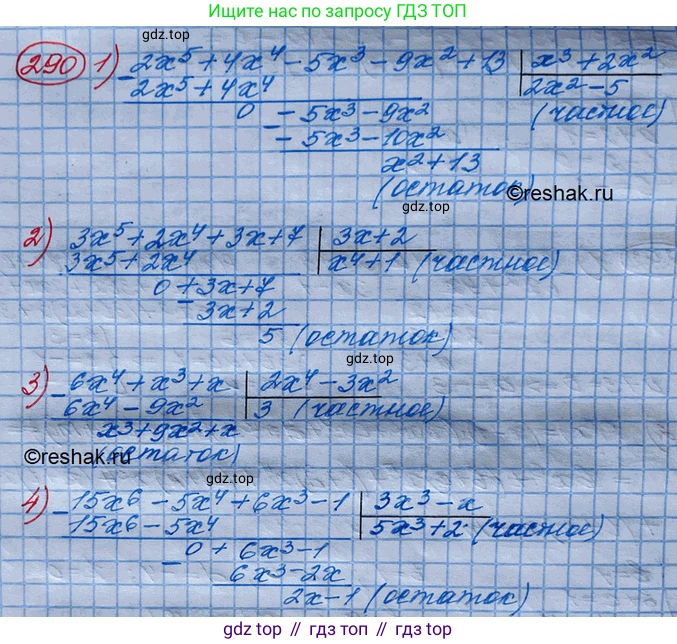 Ищите наш канал по запросу ГДЗ ТОП
gdz.top
290 1) 2x⁵ + 4x⁴ - 5x³ - 9x² + 13 | x³ + 2x²
- 2x⁵ + 4x⁴ 2x² - 5
0 - 5x³ - 9x² (частное)
- - 5x³ - 10x²
x² + 13
(остаток) ©reshak.ru
gdz.top
2) 3x⁵ + 2x⁴ + 3x + 7 | 3x + 2
3x⁵ + 2x⁴ x⁴ + 1 (частное)
0 + 3x + 7
- 3x + 2
5 (остаток)
gdz.top
3) - 6x⁴ + x³ + x | 2x⁴ - 3x²
6x⁴ - 9x² 3 (частное)
x³ + 9x² + x
©reshak.ru (остаток)
gdz.top
4) - 15x⁶ - 5x⁴ + 6x³ - 1 | 3x³ - x
15x⁶ - 5x⁴ 5x³ + 2 (частное)
0 + 6x³ - 1
- 6x³ - 2x
2x - 1 (остаток)
gdz.top // гдз.топ // gdz.top